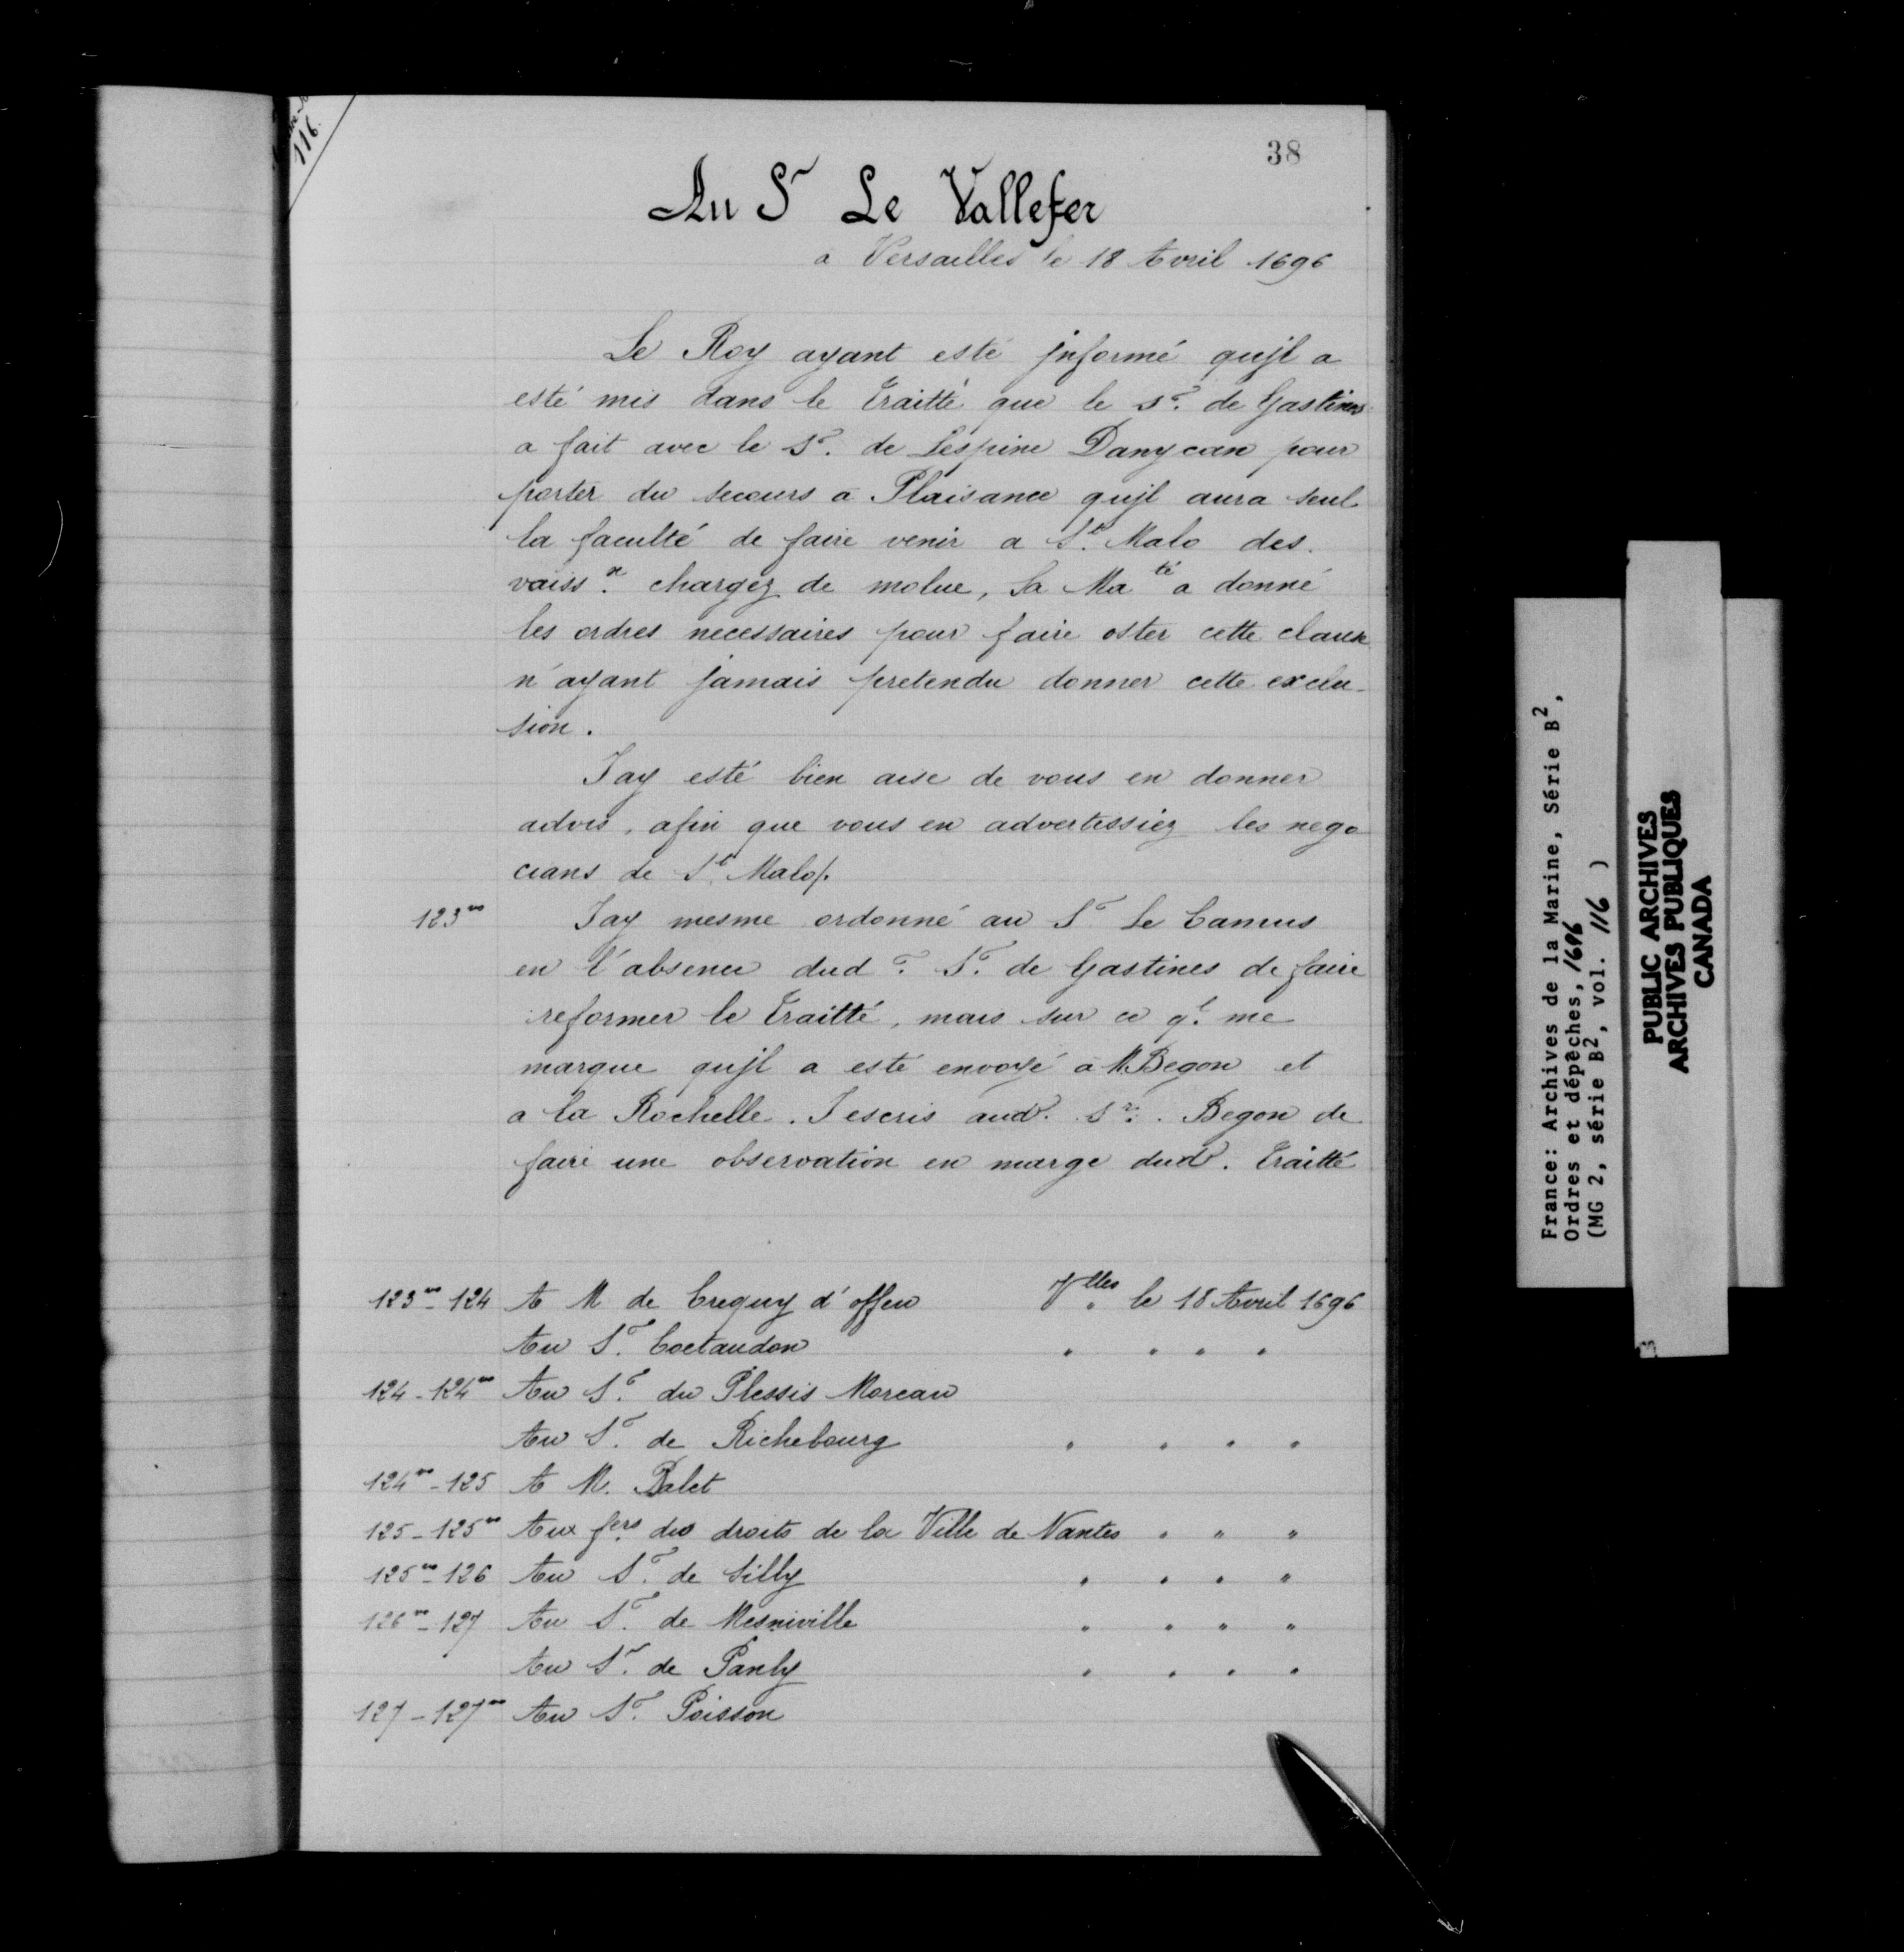 116.
38
Au Sr Le Vallefer
a Versailles le 18 Avril 1696
Le Roy ayant esté jnformé qujl a
esté mis dans le Traitté que le Sr. de Gastines
a fait avec le Sr. de Lespine Danycan pour
porter du secours a Plaisance qujl aura seul
la faculté de faire venir a St. Malo des
vaissx. chargez de molue, Sa Maté a donné
les ordres necessaires pour faire oster cette clause
n'ayant jamais pretendu donner cette exclu-
sion.
Jay esté bien aise de vous en donner
advis, afin que vous en advertissiez les nego
cians de St. Malo/.
123vo Jay mesme ordonné au Sr Le Camus
en l'absence dudr. Sr. de Gastines de faire
reformer le Traitté, mais sur ce ql. me
marque qujl a esté envoyé a M. Begon et
a la Rochelle. J'escris aud. Sr. Begon de
faire une observation en marge dud. Traitté
123vo-124 A M de Crequy d'offeu Vlles le 18 Avril 1696
Au Sr. Coetaudon " " " "
124-124vo Au Sr. du Plessis Moreau
Au Sr. de Richebourg " " " "
124vo-125 A M. Balet
125-125vo Aux fers des droits de la Ville de Nantes " " "
125vo-126 Au Sr. de Silly " " " "
126vo-127 Au Sr. de Mesniville " " " "
Au Sr. de Panly " " " "
127-127vo Au Sr. Poisson
France: Archives de la Marine, Série B2,
Ordres et dépêches, 1696
(MG 2, série B2, vol. 116 )
PUBLIC ARCHIVES
ARCHIVES PUBLIQUES
CANADA